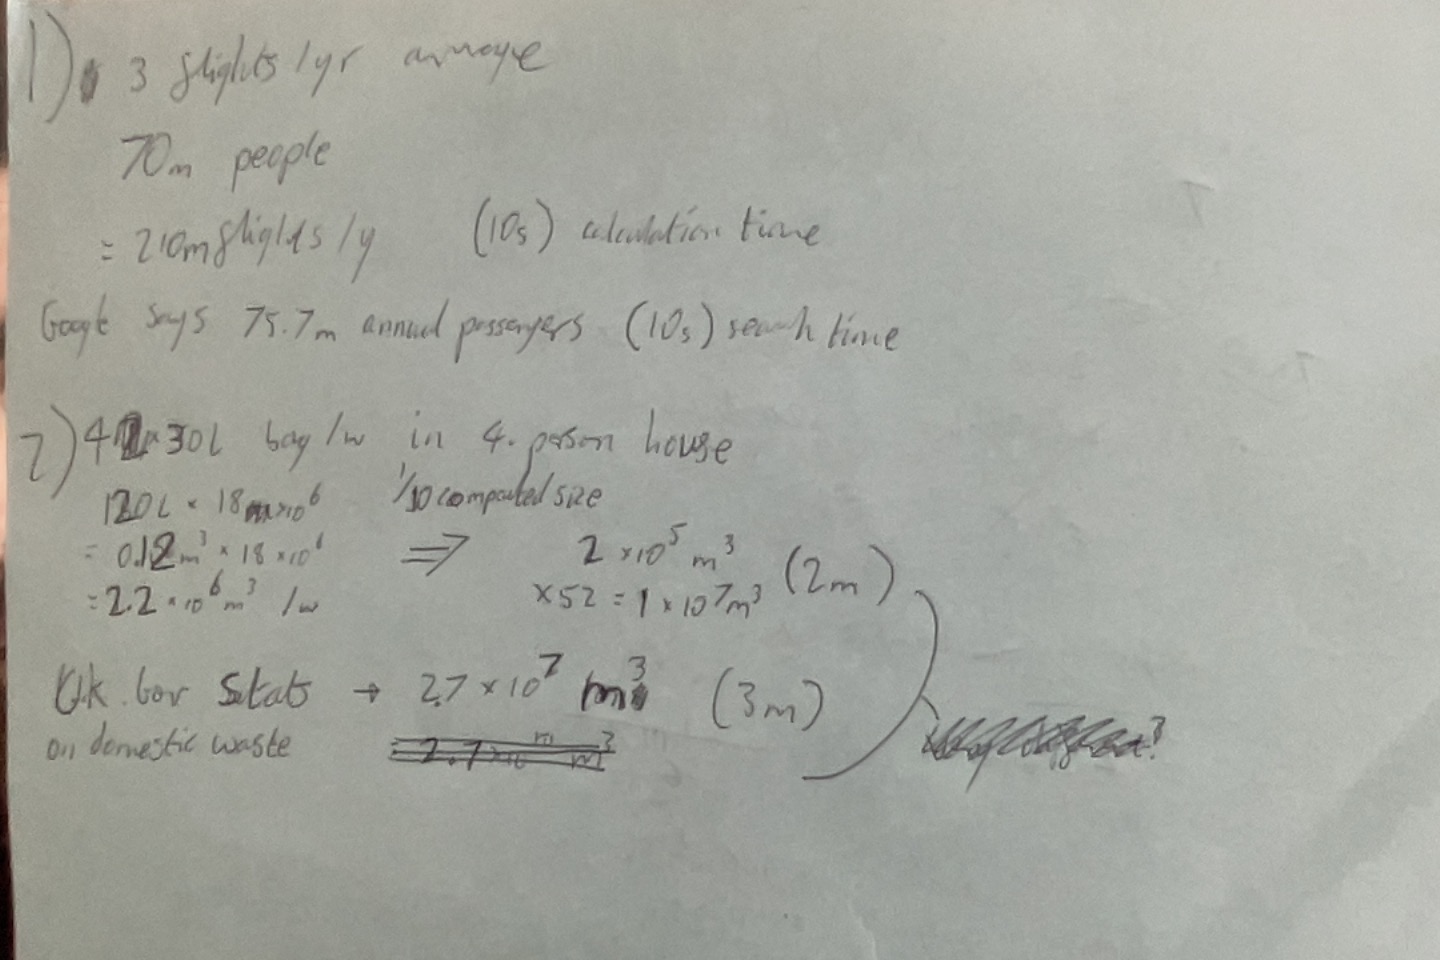 1) 3 flights /yr average
70m people
= 210m flights /y (10s) calculation time
Google says 75.7m annual passengers (10s) search time
2) 4 × 30L bag /w in 4. person house
120L × 18 × 10⁶ 1/10 compacted size
= 0.12m³ × 18 × 10⁶ ⇒ 2 × 10⁵ m³ (2m)
= 2.2 × 10⁶ m³ /w × 52 = 1 × 10⁷ m³
Uk. Gov Stats → 2.7 × 10⁷ m³ (3m)
on domestic waste